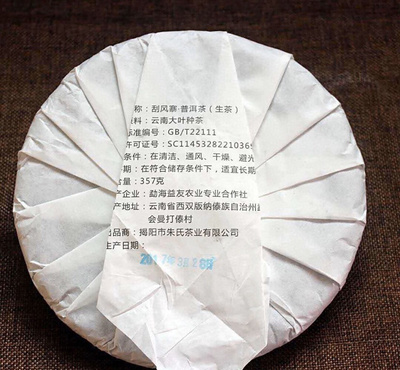 称：刮风寨·普洱茶（生茶）
料：云南大叶种茶
标准编号：GB/T22111
许可证号：SC1145328221036
条件：在清洁、通风、干燥、避光
期：在符合储存条件下，适宜长期
含量：357克
产企业：勐海益友农业专业合作社
产地址：云南省西双版纳傣族自治州
会曼打傣村
出品商：揭阳市朱氏茶业有限公司
生产日期：